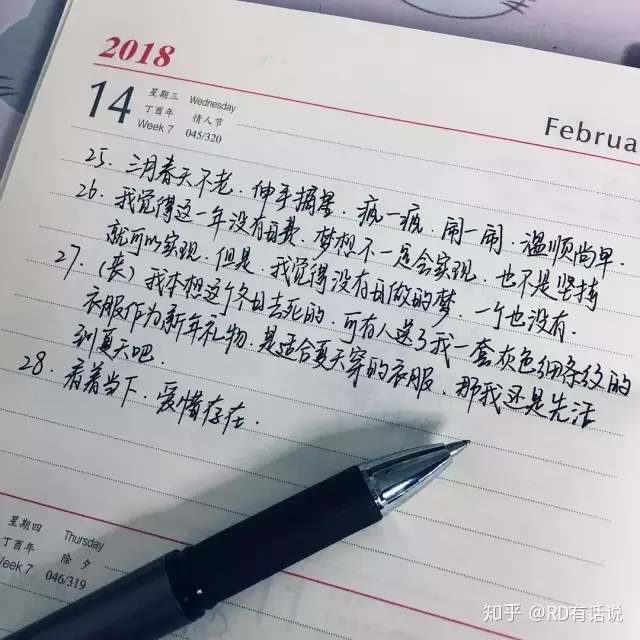 2018
14
星期三 Wednesday
丁酉年 情人节
Week 7 045/320
Februa
25. 三月春天不老.伸手摘星.疯一疯.闹一闹.温顺尚早.
26. 我觉得这一年没有白费.梦想不一定会实现.也不是坚持
就可以实现.但是.我觉得没有白做的梦.一个也没有.
27. (丧)我本想这个冬日去死的.可有人送了我一套灰色细条纹的
衣服作为新年礼物.是适合夏天穿的衣服.那我还是先活
到夏天吧.
28. 看着当下.爱惜存在.
星期四 Thursday
丁酉年 除夕
Week 7 046/319
知乎 @RD有话说